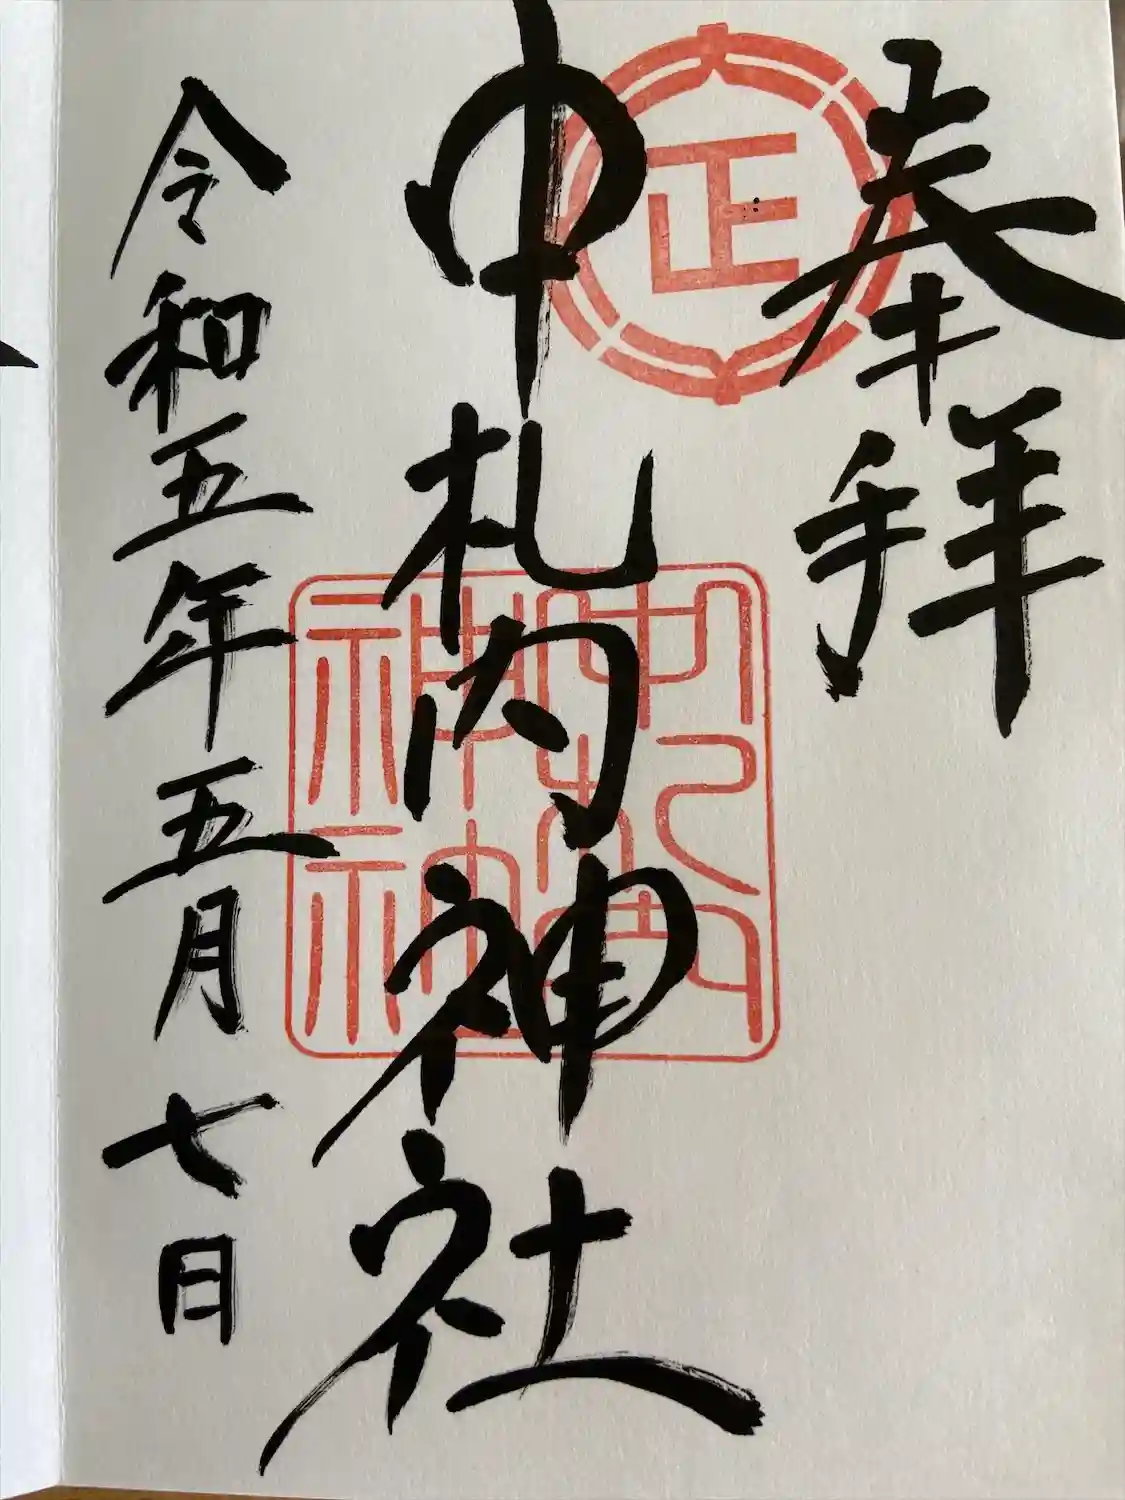 奉拝
正
中札内神社
中札内神社
令和五年五月七日